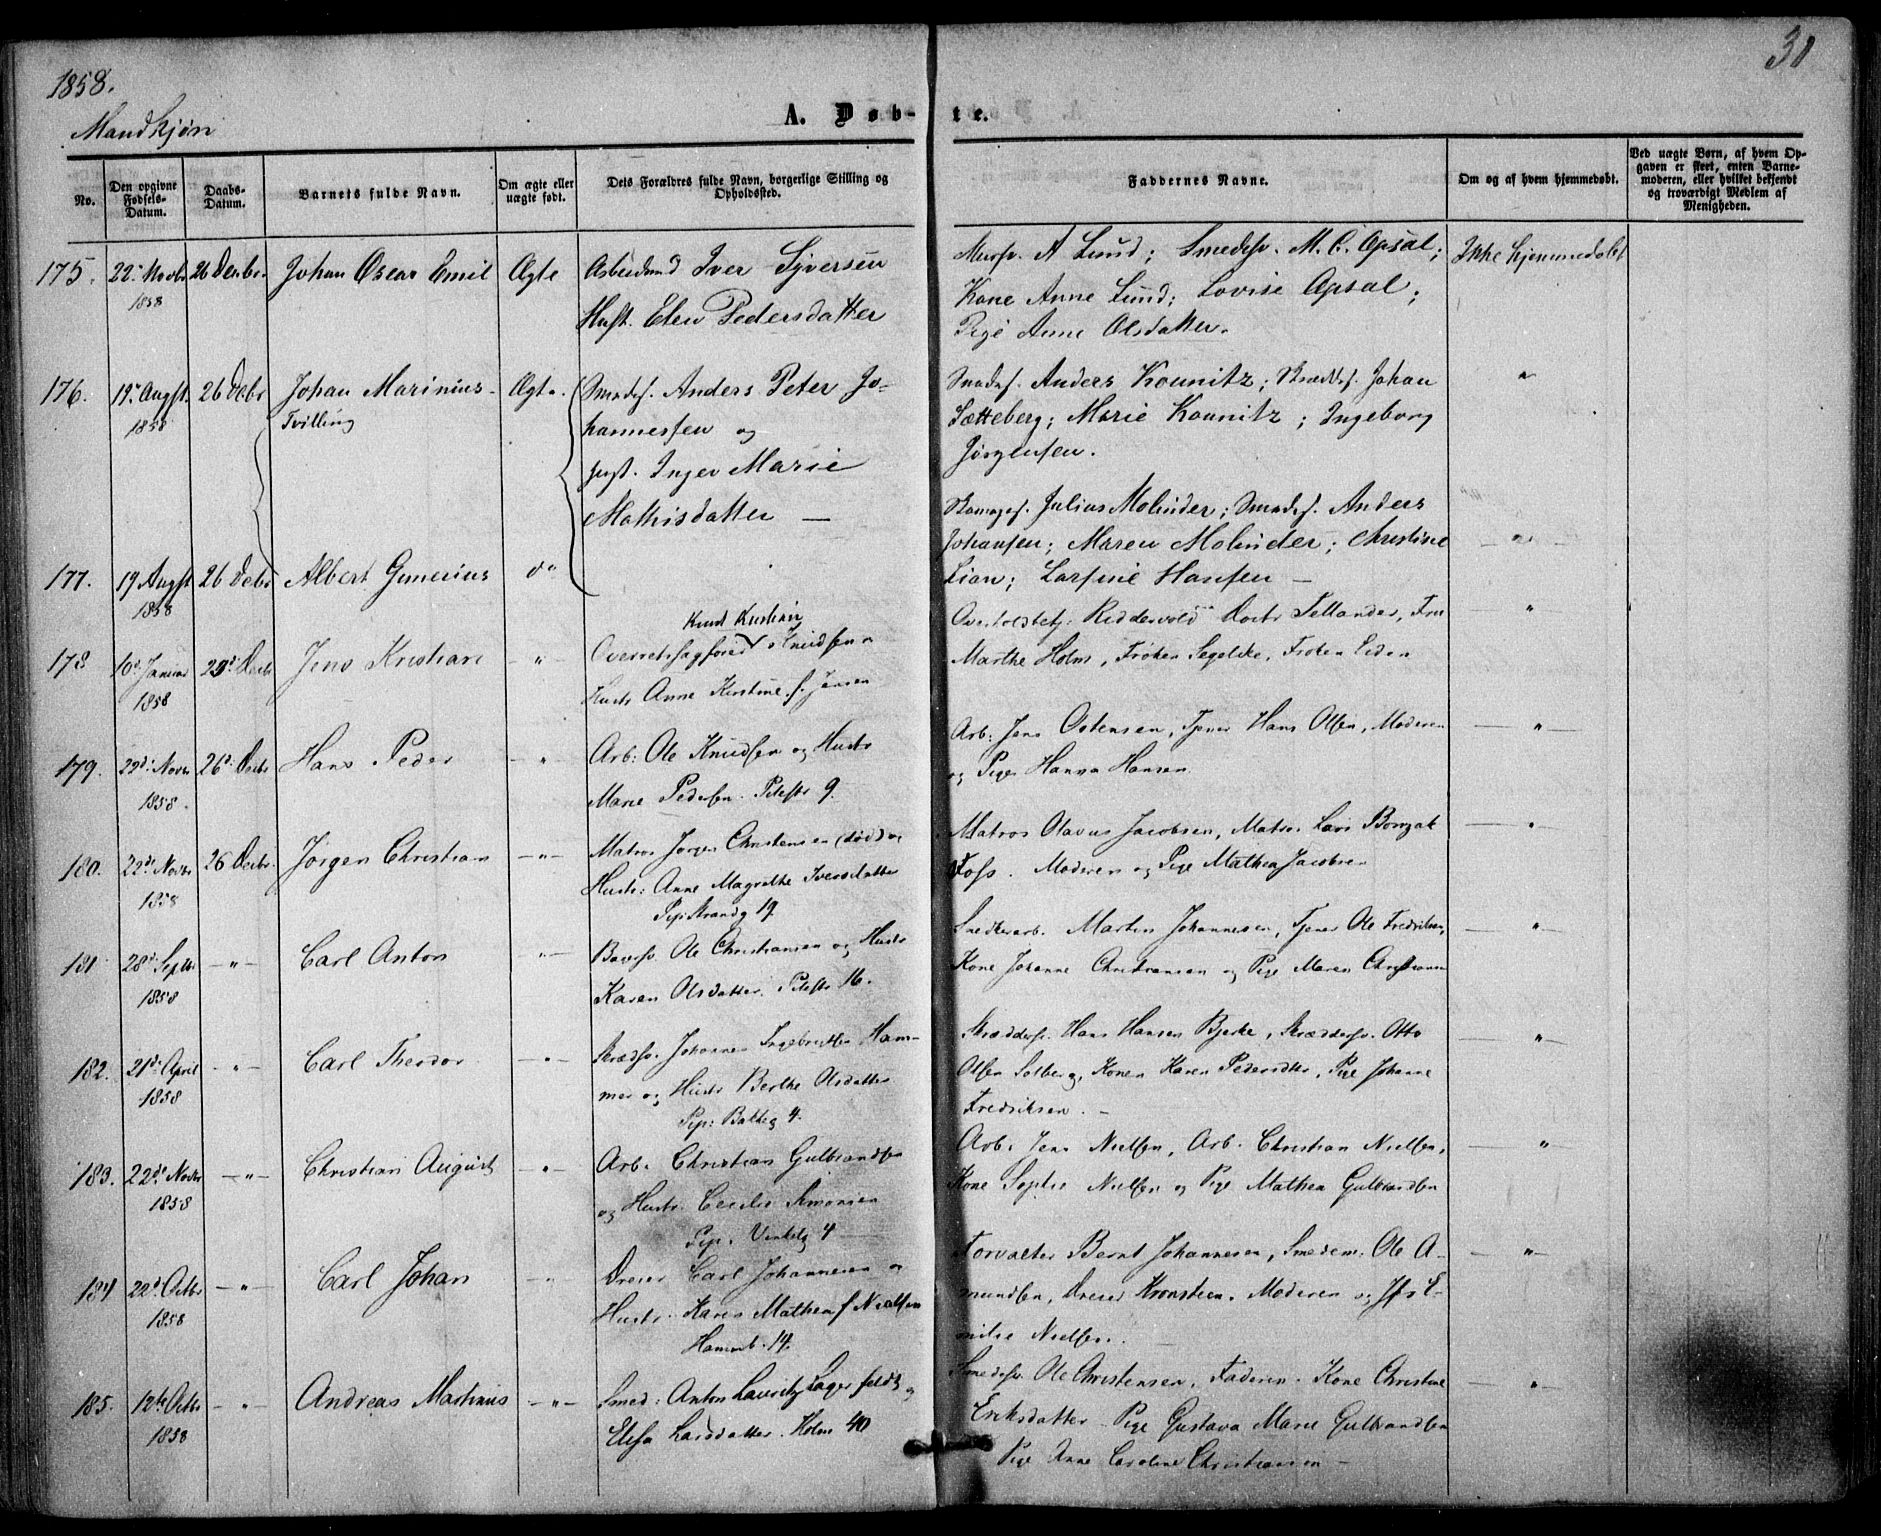 1858.
30
Mandkjøn
A. Døbte.
No.
Den opgivne Fødsels-Datum.
Daabs-Datum.
Barnets fulde Navn.
Om ægte eller uægte født.
Dets Forældres fulde Navn, borgerlige Stilling og Opholdssted.
Faddernes Navne.
Om og af hvem hjemmedøbt.
Ved uægte Børn, af hvem Opgaven er skeet, enten Barnemoderen, eller hvilket bekjendt og troværdigt Medlem af Menigheden.
175. 22. Novbr 1858 26 Decbr. Johan Oscar Emil Ægte
Arbeidsmd Iver Syversen
Hust. Elen Pedersdatter
Mursv. A Lund; Smedesv. M. C. Opsal;
Kone Anne Lund; Lovise Opsal;
Pige Anne Olsdatter.
Ikke hjemmedøbt
176. 19 Augst. 1858 26 Decbr Johan Marinius Tvilling Ægte.
Smedes. Anders Peter Jo-
hannessen og
Hust. Inger Marie
Mathisdatter —
Smedes. Anders Kounitz; Skrædds. Johan
Sætteberg; Marie Kounitz; Ingeborg
Jørgensen.
"
177. 19 Augst 1858 26 Decbr Albert Gunerius do
Skomags. Julius Molinder; Smedes. Anders
Johansen; Maren Molinder; Christine
Lian; Larsine Hansen —
— " —
178 10d Januar 1858 29d Decbr Jens Kristian — " —
Knud Kristian
Overretssagfører Knudsen o
Hustr Anne Kirstine f. Jensen
Riddervold Fellander, Fru
Marthe Holm, Frøken Segelcke, Frøken
"
179. 22d: Novbr 1858. 26d: Decbr Hans Peder — " —
Arb: Ole Knudsen og Hustr
Marie Pedersen. Pilestr 9.
Arb: Jens Ostensen, Tjener Hans Olsen, Moderen
og Pige Hanna Hansen
— " —
180. 22d: Novbr 1858 26 Decbr. Jørgen Christian — " —
Matros Jørgen Christensen (død) o
Hustr: Anne Magrethe Iversdatter
Pip: Strandg 19.
Matros Olavus Jacobsen, Matros Lars
Foss. Moderen og Pige Mathea Jacobsen
— " —
181 28d: Septbr 1858 — " — Carl Anton — " —
Ole Christiansen og Hustr
Karen Olsdatter. Pilestr 16.
Snedkerarb. Martin Johannesen, Tjener Ole Fredriksen,
Kone Johanne Christiansen og Pige Maren Christiansen
— " —
182. 21d: April 1858 — " — Carl Theodor — " —
Skrædsv. Johannes Ingebretsen Ham-
mer og Hustr Berthe Olsdatter
Pip: Bakkeg 4.
Skræddersv. Hans Hansen Bjerke, Skræddersv. Otto
Olsen Solberg, Konen Karen Pedersdtr, Pige Johanne
Fredriksen. —
"
183. 22d: Novbr 1858 — " — Christian August — " —
Arb. Christian Gulbrandsen
og Hustr. Cecilie Simonsen
Pip. Vinkelg 4
Arb. Jens Nielsen, Arb. Christian Nielsen,
Kone Sophie Nielsen og Pige Mathea Gulbrandsen
— " —
184 22d: Octbr 1858 — " — Carl Johan "
Dreier Carl Johannesen og
Hustr. Karen Mathea f Nielsen
Hamarb. 14.
Forvalter Bernt Johannesen, Smedem: Ole A-
mundsen, Dreier Kronsteen. Moderen og Jfr E-
milie Nielsen.
— " —
185. 12te Octbr 1858 — " — Andreas Martinus — " —
Smed: Anton Lauritz Lagerfeldt og
Elisa Larsdatter. Holm 40
Smedesv. Ole Christensen, Faderen. Kone Christine
Eriksdatter Pige Gustava Marie Gulbrandsen
Pige Anne Caroline Christiansen —
— " —